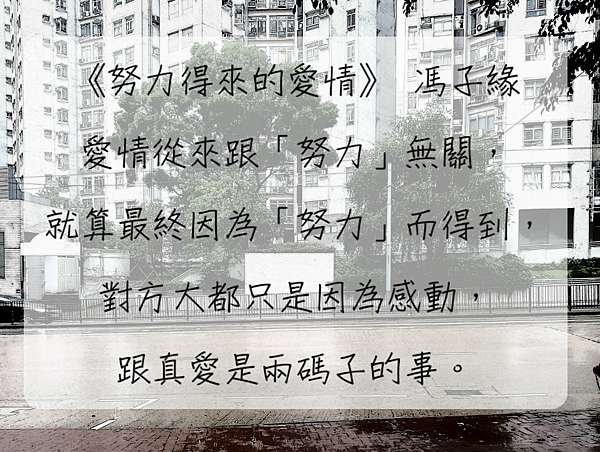 《努力得來的愛情》 馮子緣
愛情從來跟「努力」無關，
就算最終因為「努力」而得到，
對方大都只是因為感動，
跟真愛是兩碼子的事。